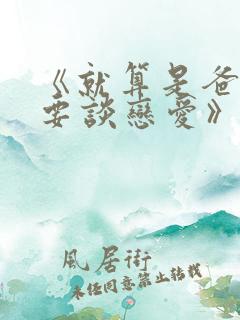 《就算是爸
要談戀愛》
風居街
未經同意禁止轉載